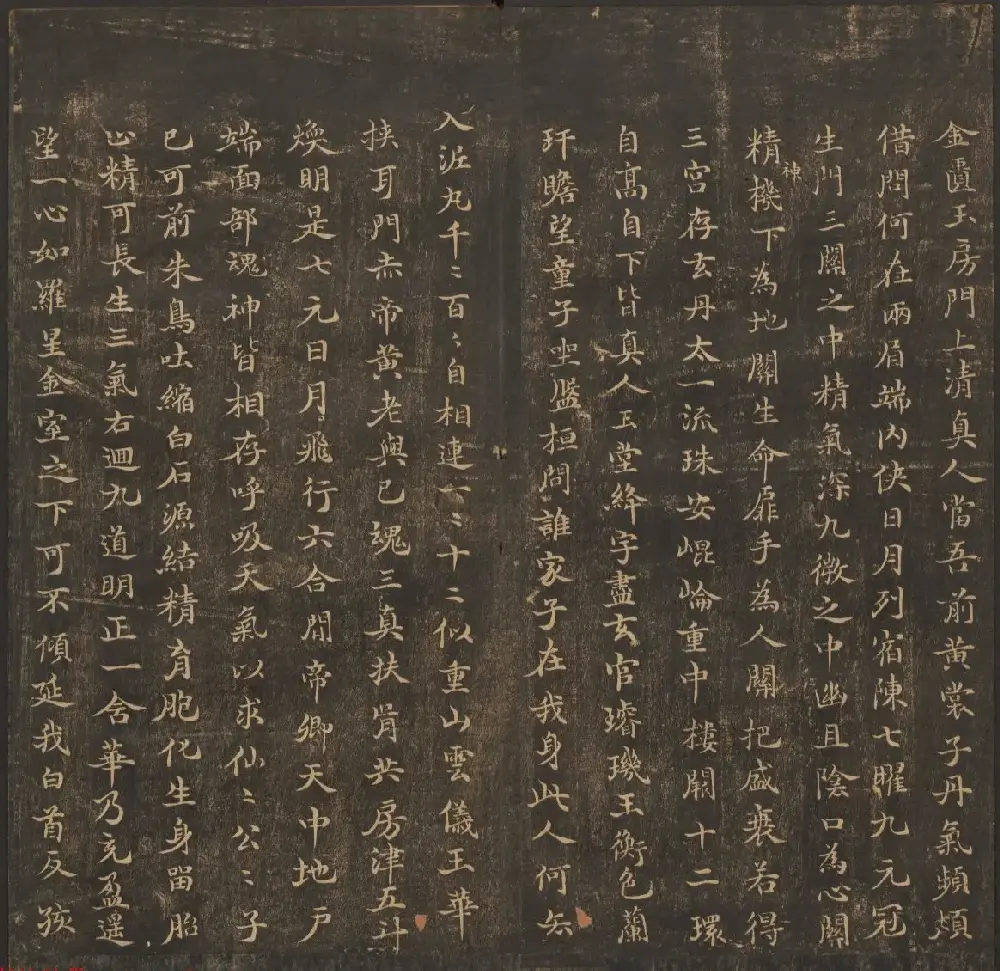 金匱玉房門上清真人當吾前黄裳子丹氣頻煩
借問何在兩眉端内俠日月列宿陳七曜九元冠
生門三關之中精氣深九微之中幽且陰口為心關
精神機下為地關生命扉手為人關把盛衰若得
三宫存玄丹太一流珠安崐崘重中樓闕十二環
自髙自下皆真人玉堂絳宇盡玄宫璿璣玉衡色蘭
玕瞻望童子坐盤桓問誰家子在我身此人何去
入泥丸千〻百〻自相連一〻十二似重山雲儀玉華
挾耳門赤帝黄老與己魂三真扶胥共房津五斗
煥明是七元日月飛行六合間帝卿天中地户
端面部魂神皆相存呼吸天氣以求仙〻公〻子
已可前朱鳥吐縮白石源結精育胞化生身留胎
止精可長生三氣右迴九道明正一含華乃充盈遥
望一心如羅星金室之下可不傾延我白首反孩